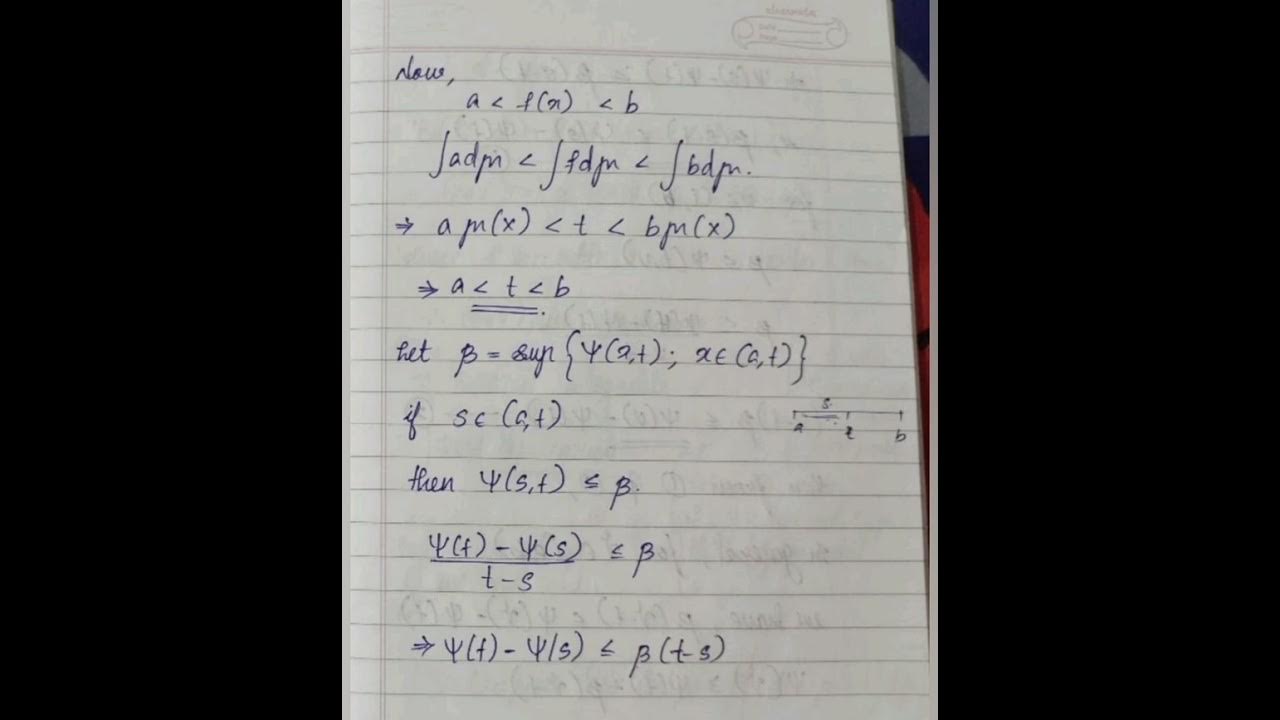 Now,
a < f(x) < b
∫adμ < ∫fdμ < ∫bdμ.
⇒ aμ(x) < t < bμ(x)
⇒ a < t < b
Let β = sup{Ψ(x,t); x∈(a,t)}
if s∈(a,t)
s
a t b
then Ψ(s,t) ≤ β.
Ψ(t) - Ψ(s) ≤ β
t-s
⇒ Ψ(t) - Ψ(s) ≤ β(t-s)